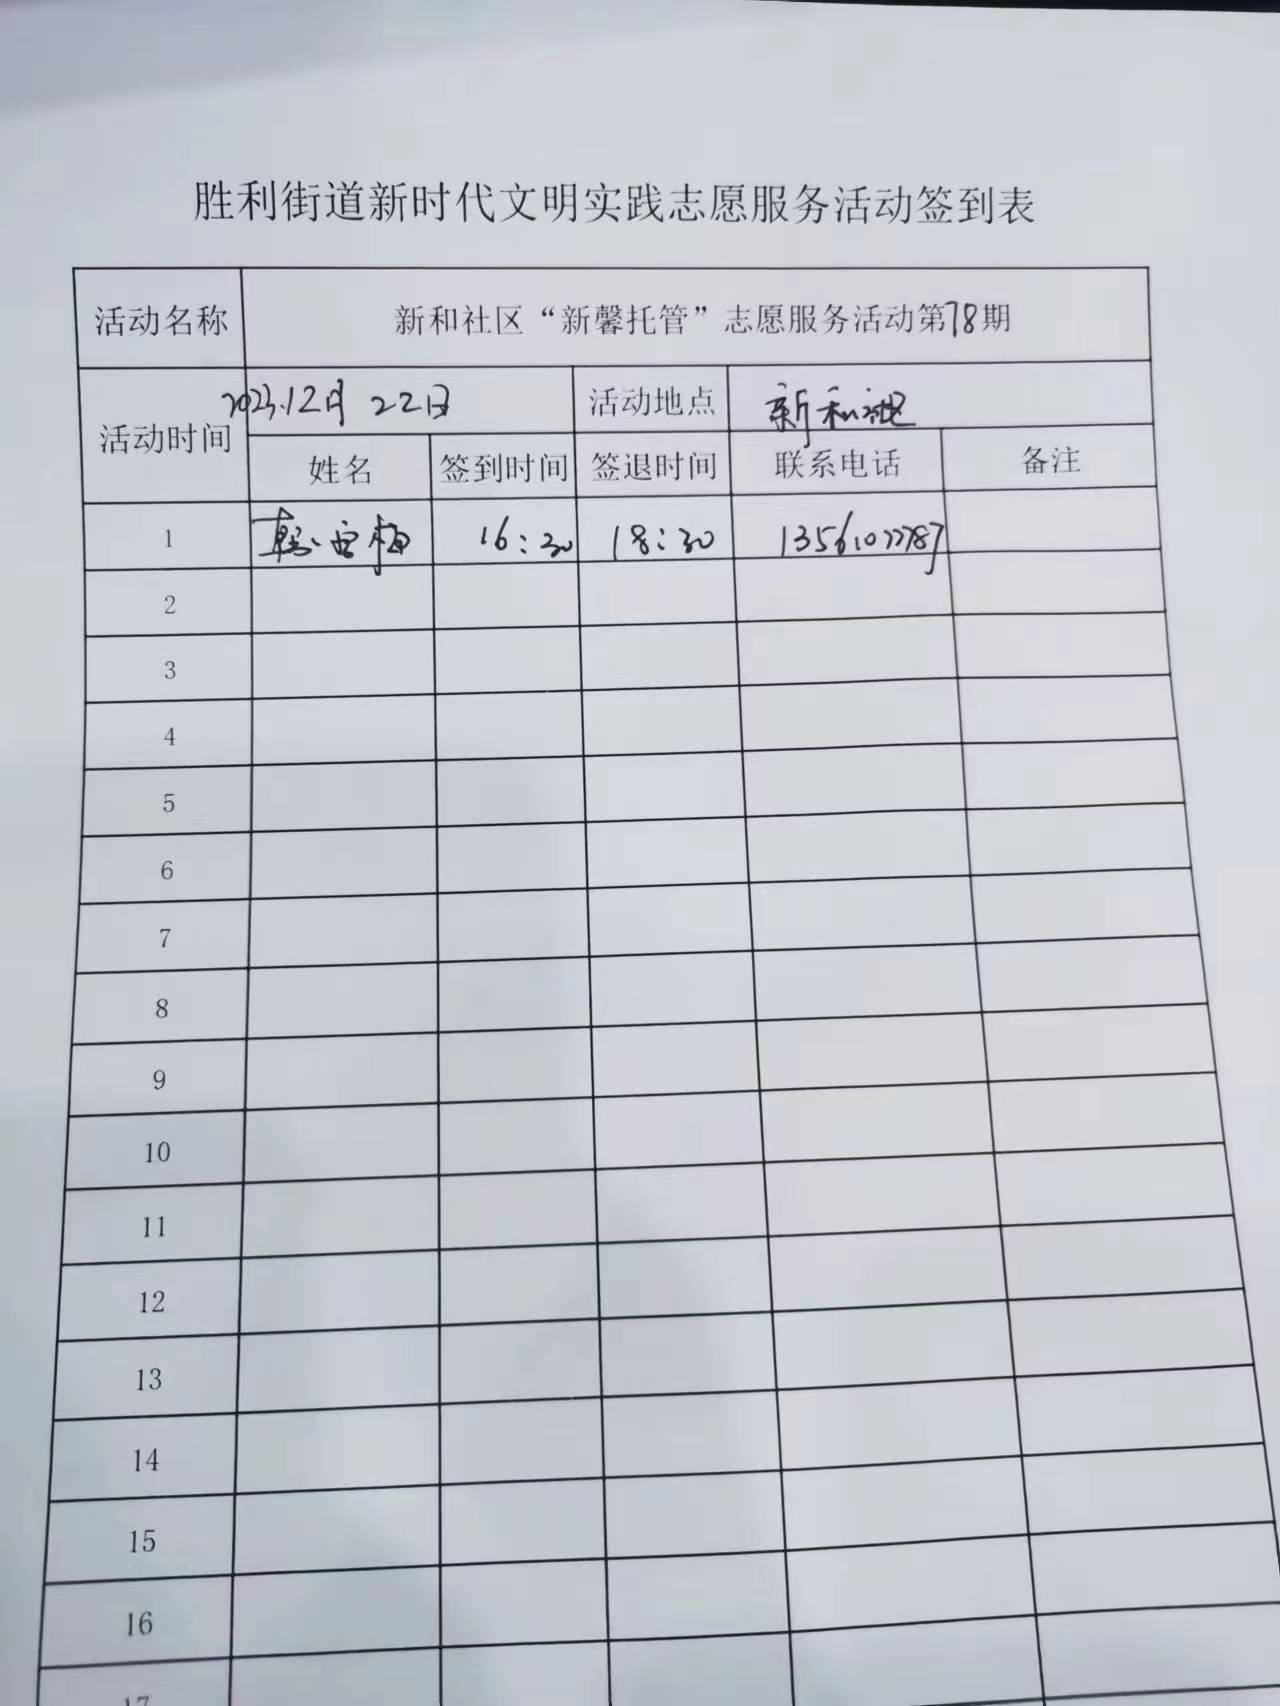 胜利街道新时代文明实践志愿服务活动签到表
活动名称 新和社区“新馨托管”志愿服务活动第78期
活动时间 2023.12月22日 活动地点 新和社区
姓名 签到时间 签退时间 联系电话 备注
1 韩雪梅 16:30 18:30 13561077787
2
3
4
5
6
7
8
9
10
11
12
13
14
15
16
17